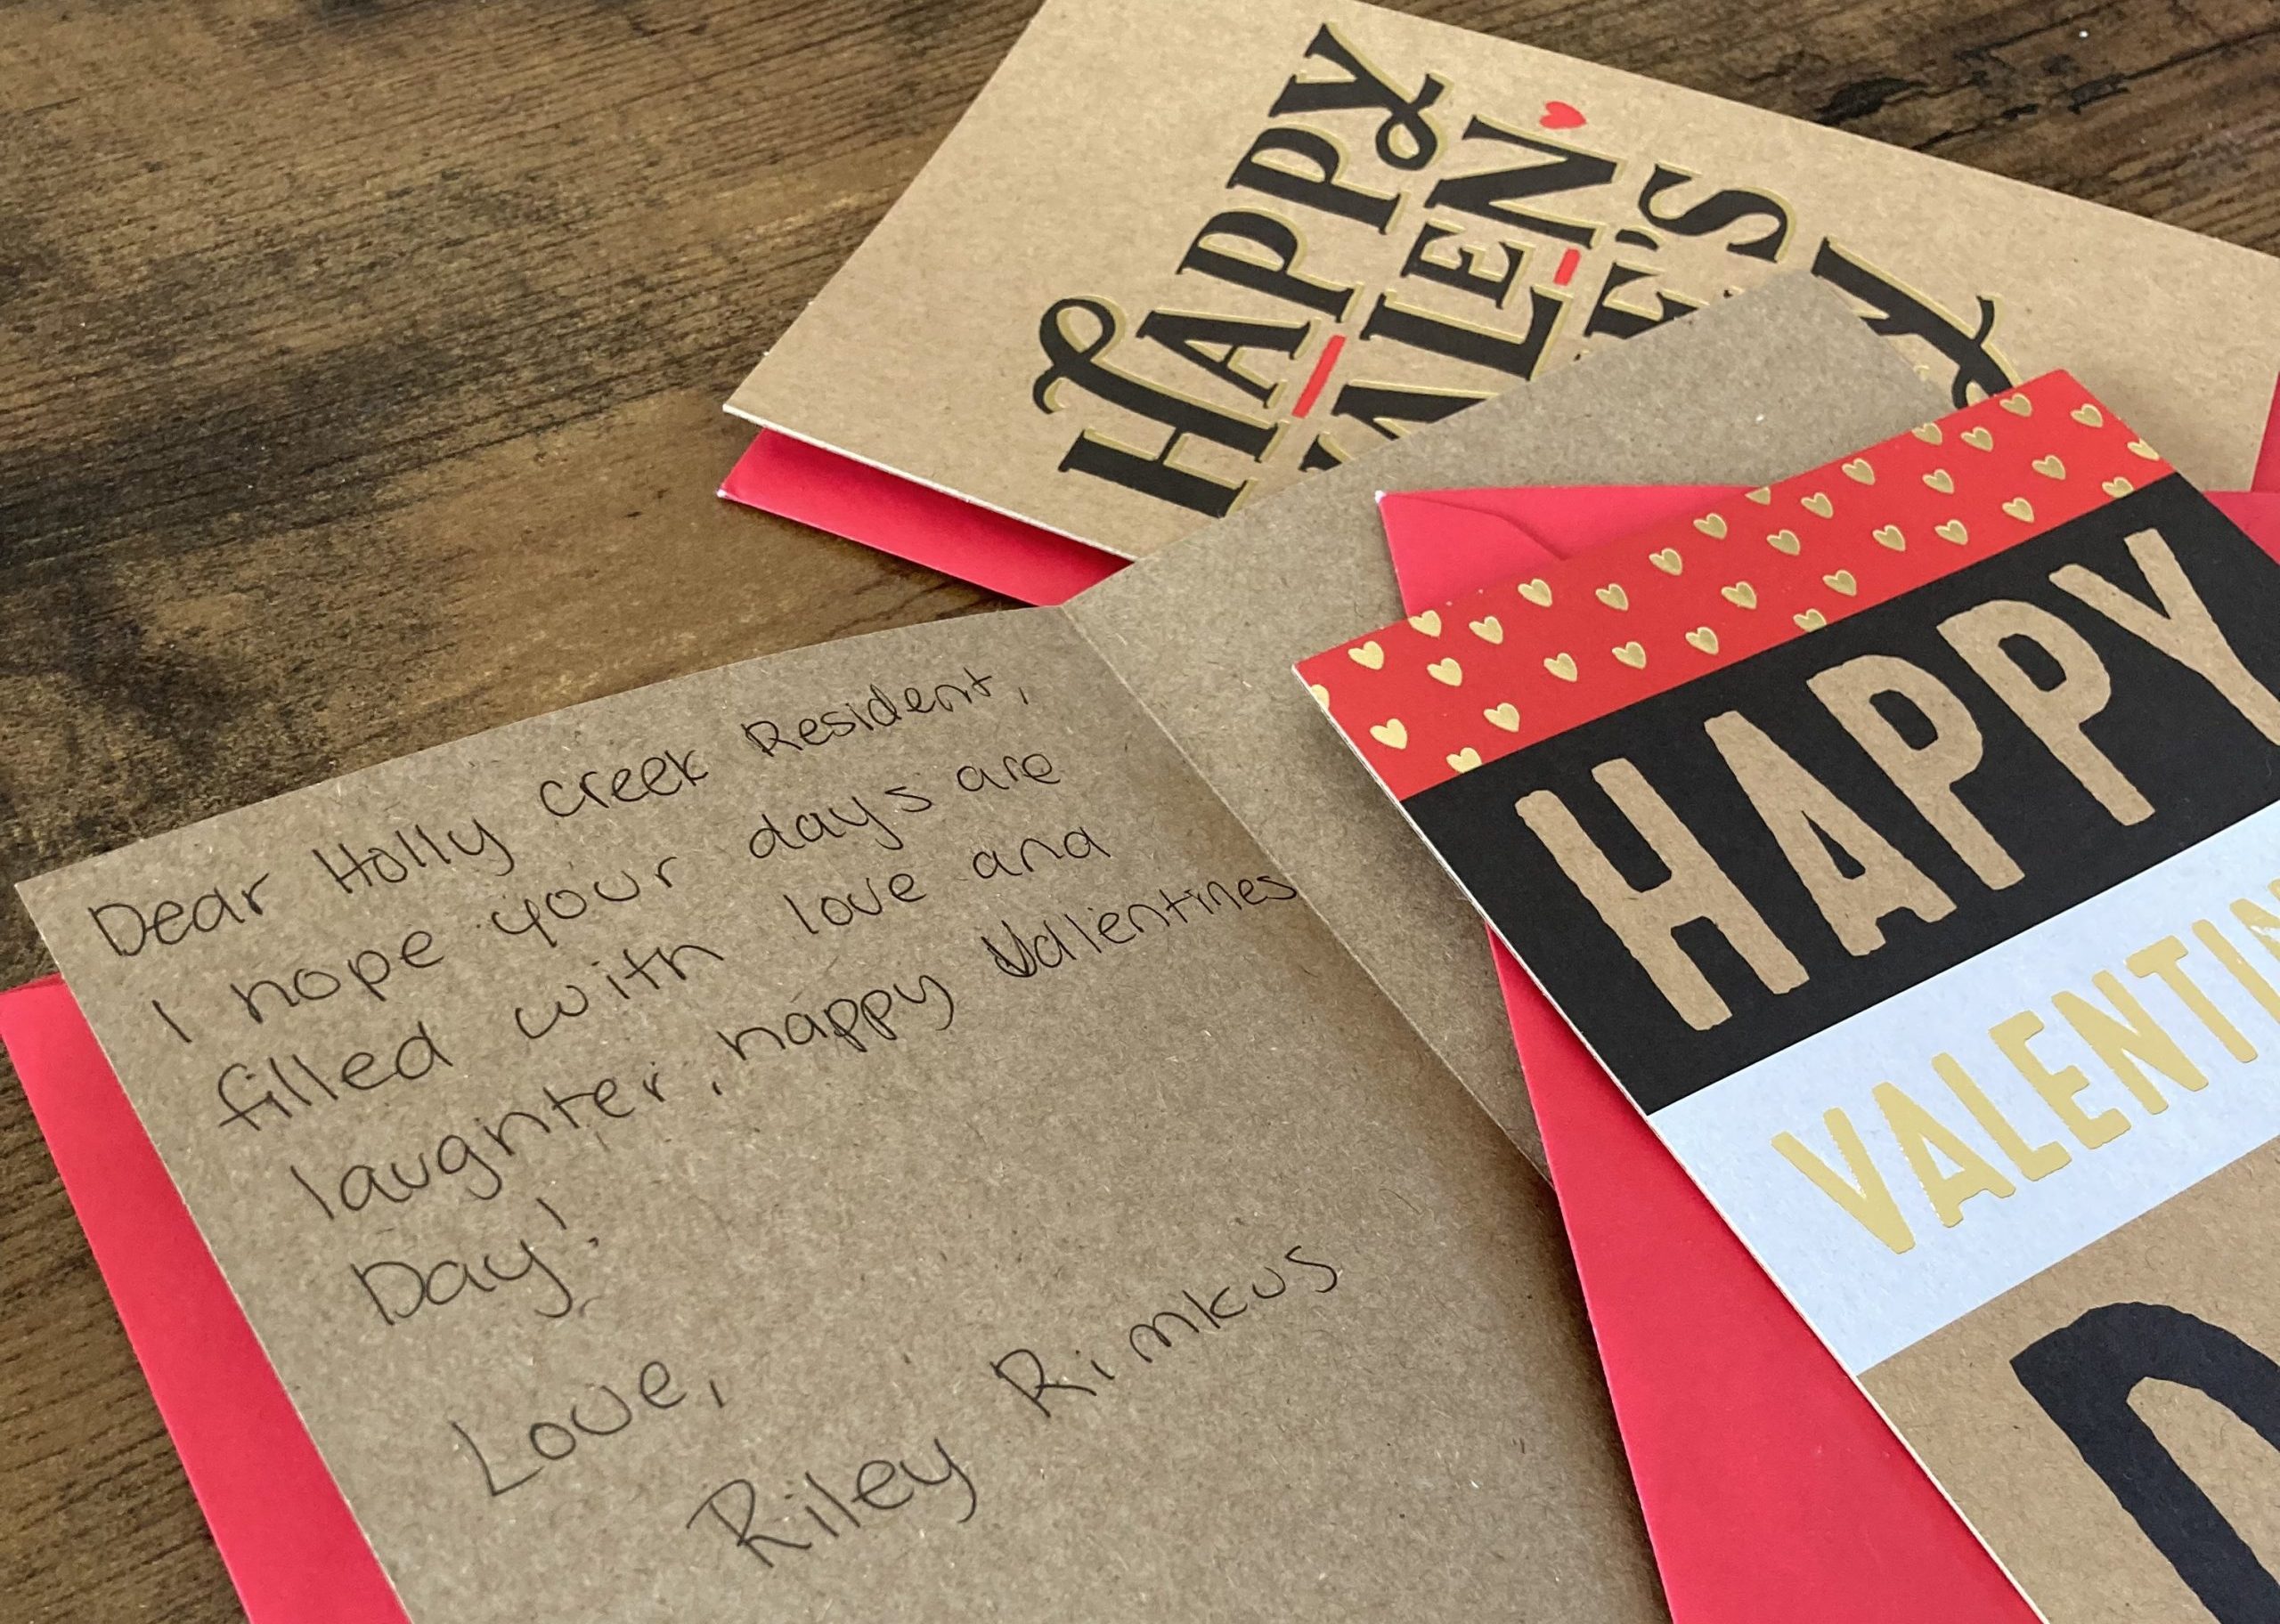 HAPPY
VALEN
E'S
Dear Holly Creek Resident,
I hope your days are
filled with love and
laughter, happy Valientines
Day!
Love,
Riley Rimkus
HAPPY
VALENTIN
D